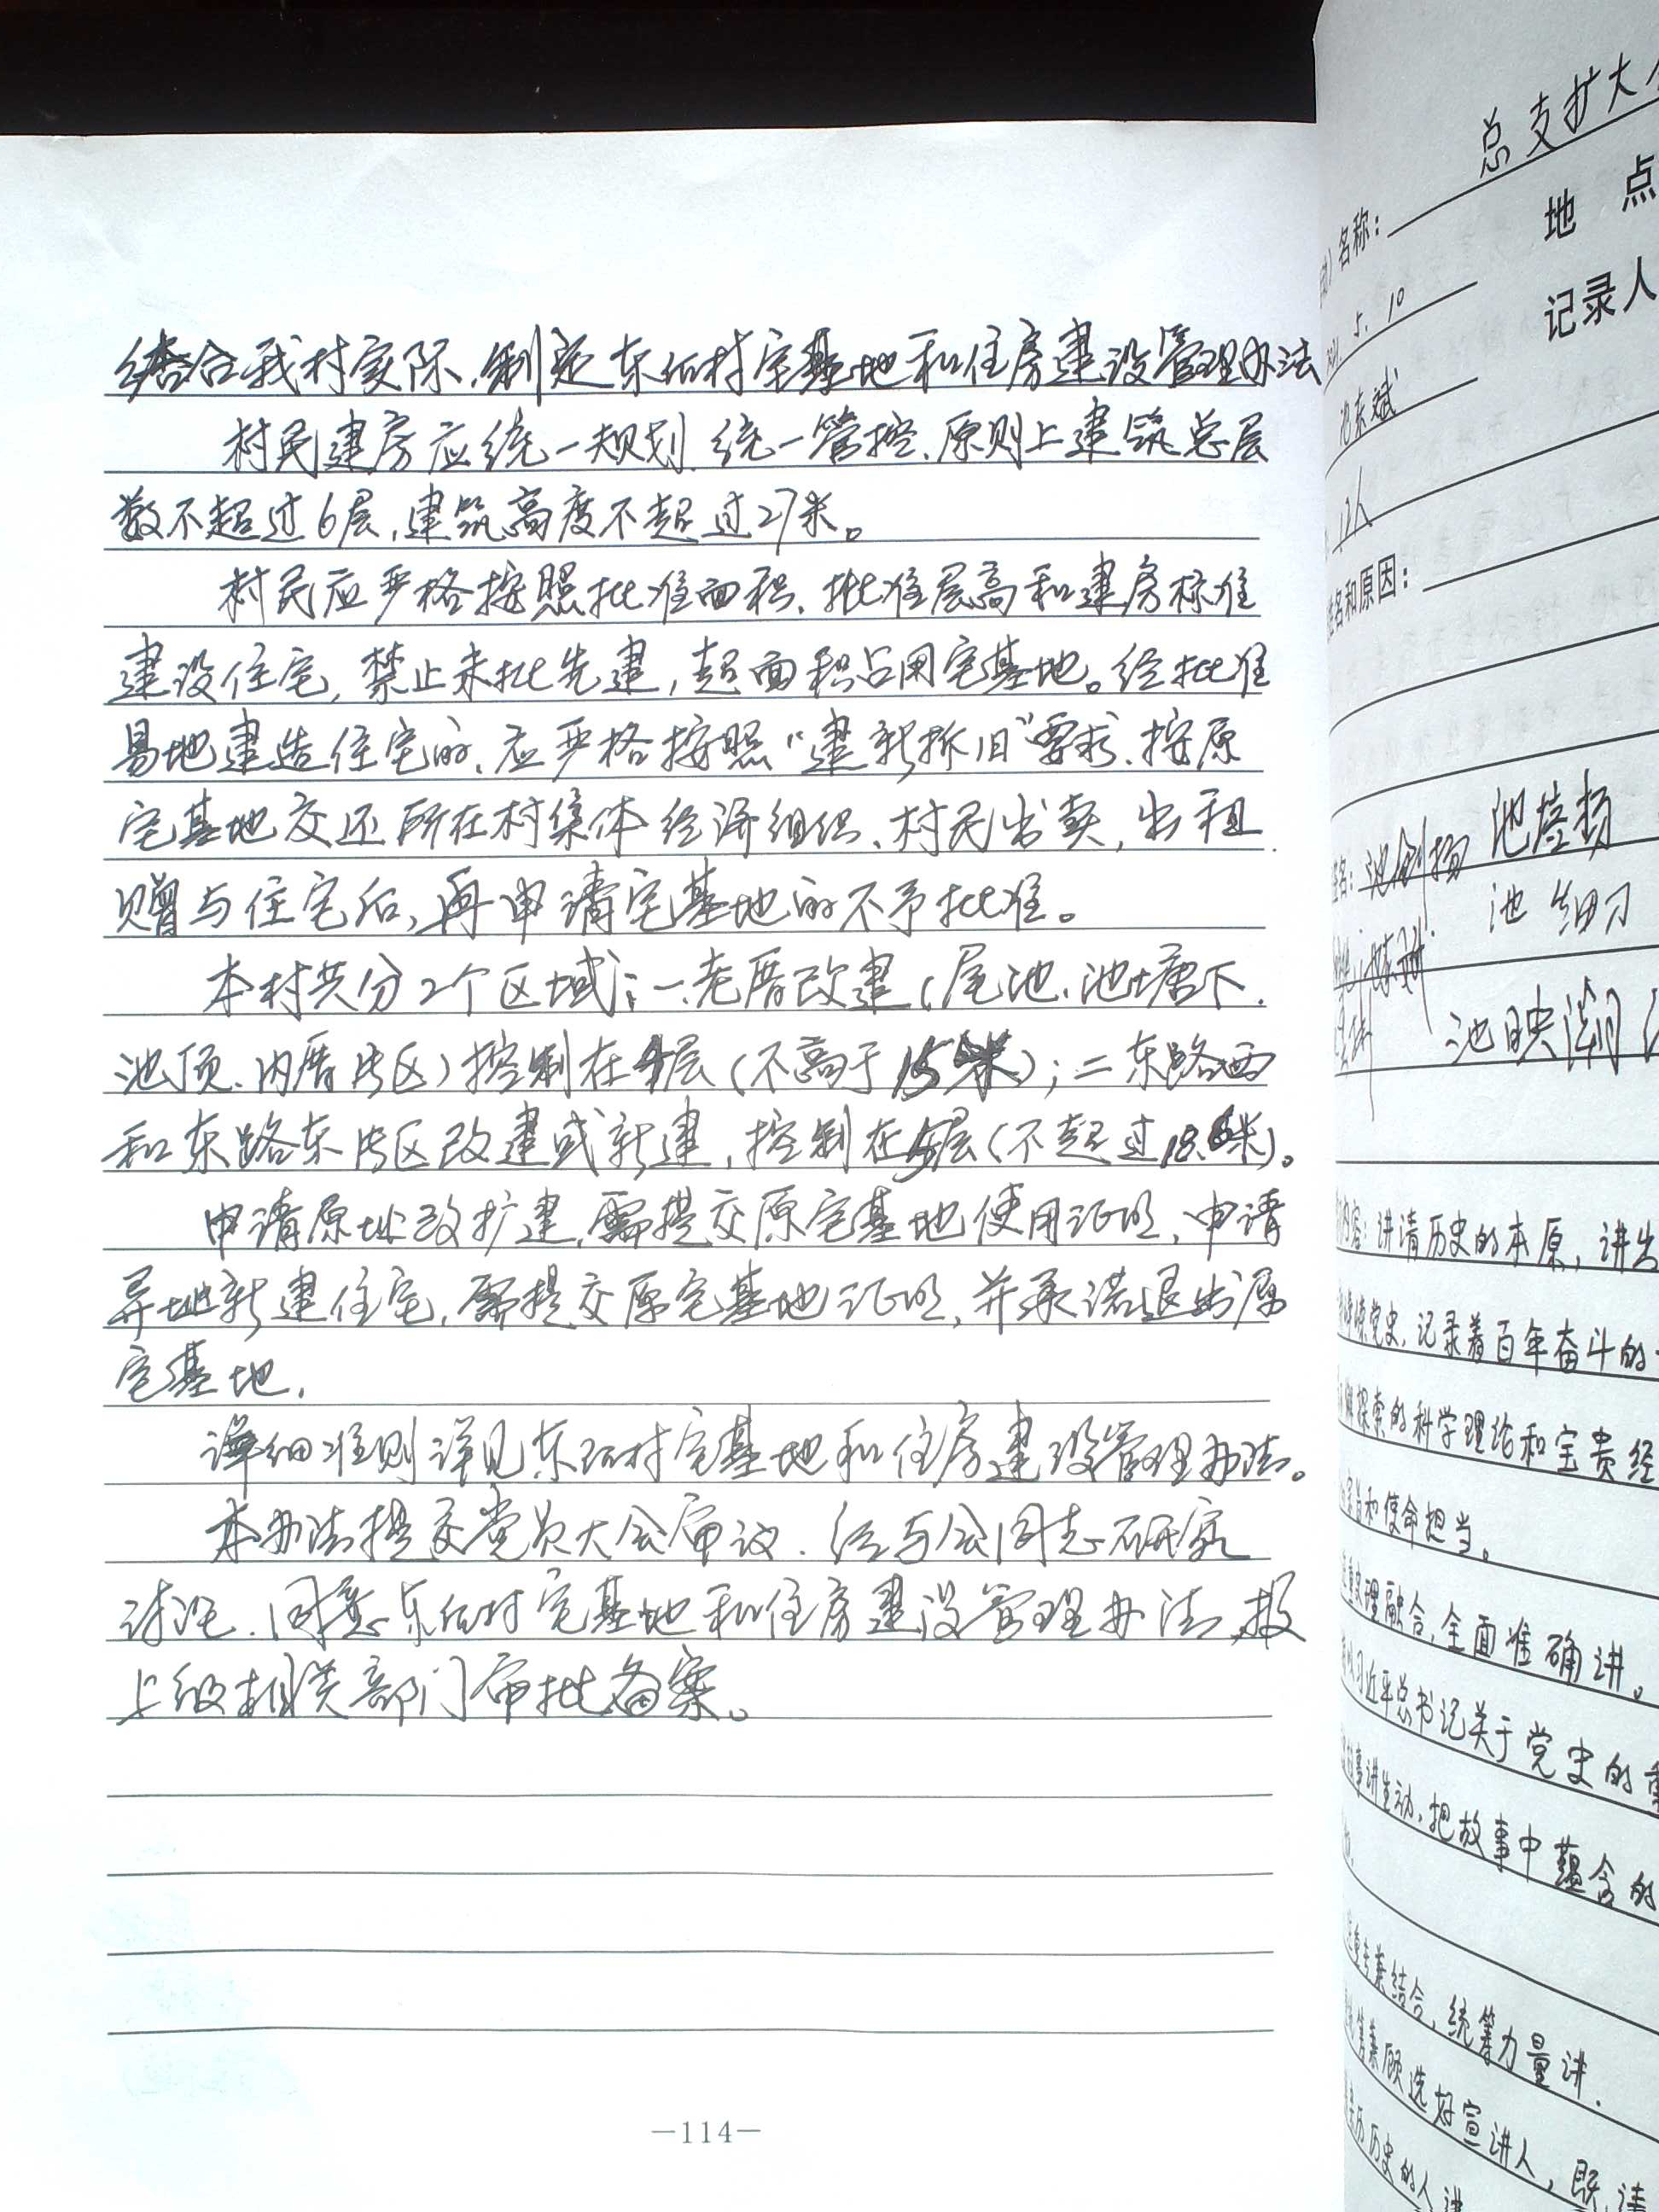 结合我村实际,制定东佰村宅基地和住房建设管理办法
村民建房应统一规划、统一管控、原则上建筑总层
数不超过6层,建筑高度不超过27米。
村民应严格按照批准面积、批准层高和建房标准
建设住宅,禁止未批先建,超面积占用宅基地。经批准
易地建造住宅的、应严格按照“建新拆旧”要求、按原
宅基地交还所在村集体经济组织、村民出卖,出租、
赠与住宅后,再申请宅基地的不予批准。
本村共分2个区域:一、老厝改建(尾池、池塘下、
池顶、内厝片区)控制在4层(不高于15米);二东路西
和东路东片区改建或新建,控制在5层(不超过18.6米)。
申请原址改扩建,需提交原宅基地使用证明、申请
异地新建住宅,需提交原宅基地证明,并承诺退出原
宅基地,
详细准则详见东佰村宅基地和住房建设管理办法。
本办法提交党员大会审议、经与会同志研究
讨论、同意东佰村宅基地和住房建设管理办法,报
上级相关部门审批备案。
—114—
总支扩大
名称:
地点
5.10
记录人
池东斌
12人
姓名和原因:
池剑扬 池培扬
池细刀
池映潮
内容:讲清历史的本原,讲出
党史,记录着百年奋斗的
探索的科学理论和宝贵经
和使命担当。
理融合,全面准确讲。
习近平总书记关于党史的重
故事讲生动,把故事中蕴含的
专兼结合,统筹力量讲.
兼顾选好宣讲人,既请
历历史的人讲